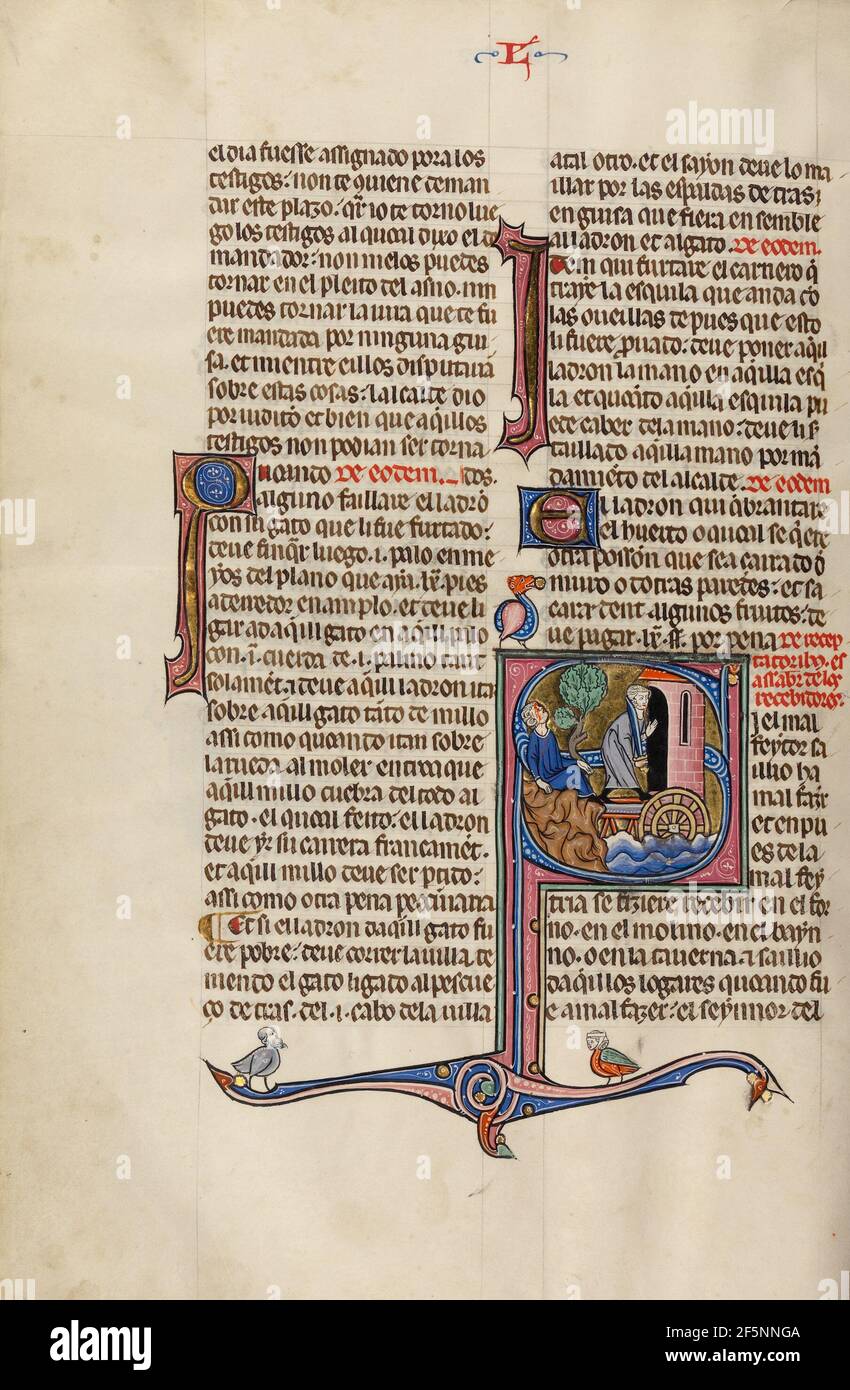 L
el dia fuesse assignado pora los
testigos: non te quiene deman
dar este plazo. qr io te torno lue
go los testigos al qual dixo el de
mandador: non me los puedes
tornar en el pleito del asno. nin
puedes tornar la iura que te fu
ere mandada por ninguna gui
sa. et mientre eillos disputauā
sobre estas cosas: lalcalde dio
por iudicio et bien que aqillos
testigos non podian ser torna
Quando De eodem. dos.
alguno faillare el ladrō
con su gato que li fue furtado:
deue finqr luego .i. palo en me
yos del plano que aya .lx. pies
aderredor en amplo. et deue li
gar ad aqill gato en aqill palo
con .i. cuerda de .i. palmo tant
solamēt. a deue aqill ladron itar
sobre aqill gato tāto de millo
assi como quando itan sobre
la rueda al moler entroa que
aqill millo cuebra del todo al
gato. el qual feito: el ladron
deue yr su carrera francamēt.
et aqill millo deue ser ptido:
assi como otra pena pecuniaria
Et si el ladron daqill gato fu
ere pobre: deue correr la uilla te
niendo el gato ligado al pescue
ço de tras. del .i. cabo dela uilla
atal otro. et el sayon deue lo ma
illar por las espaldas de tras;
en guisa que fiera ensemble
al ladron et al gato. De eodem.
Idem qui furtare el carnero q̄
traye la esquila que anda cō
las oueillas depues que esto
li fuere prouado: deue poner aqil
ladron la mano en aqilla esqi
la et quanto aqilla esquila pu
ede caber dela mano: deue li ser
taillado aqilla mano por mā
damiēto del alcalde. De eodem
El ladron qui q̄brantare
el huerto o qual se q̄ere
otra possion que sea çarrado d
muro o dotras paredes: et sa
cara dent algunos fruitos: de
ue pagar .lx. ss. por pena De recep
tatorib9. es
assabr delos
recebidores.
Si el mal
feytor sa
illio ha
mal fazer
et en pu
es de la
mal fey
tria se fiziere recebir en el for
no. en el molino. en el bayn
no. o en la tauerna. a saillio
daqillos logares quando fu
e a mal fazer: el seynnor del
alamy
Image ID: 2F5NNGA
www.alamy.com